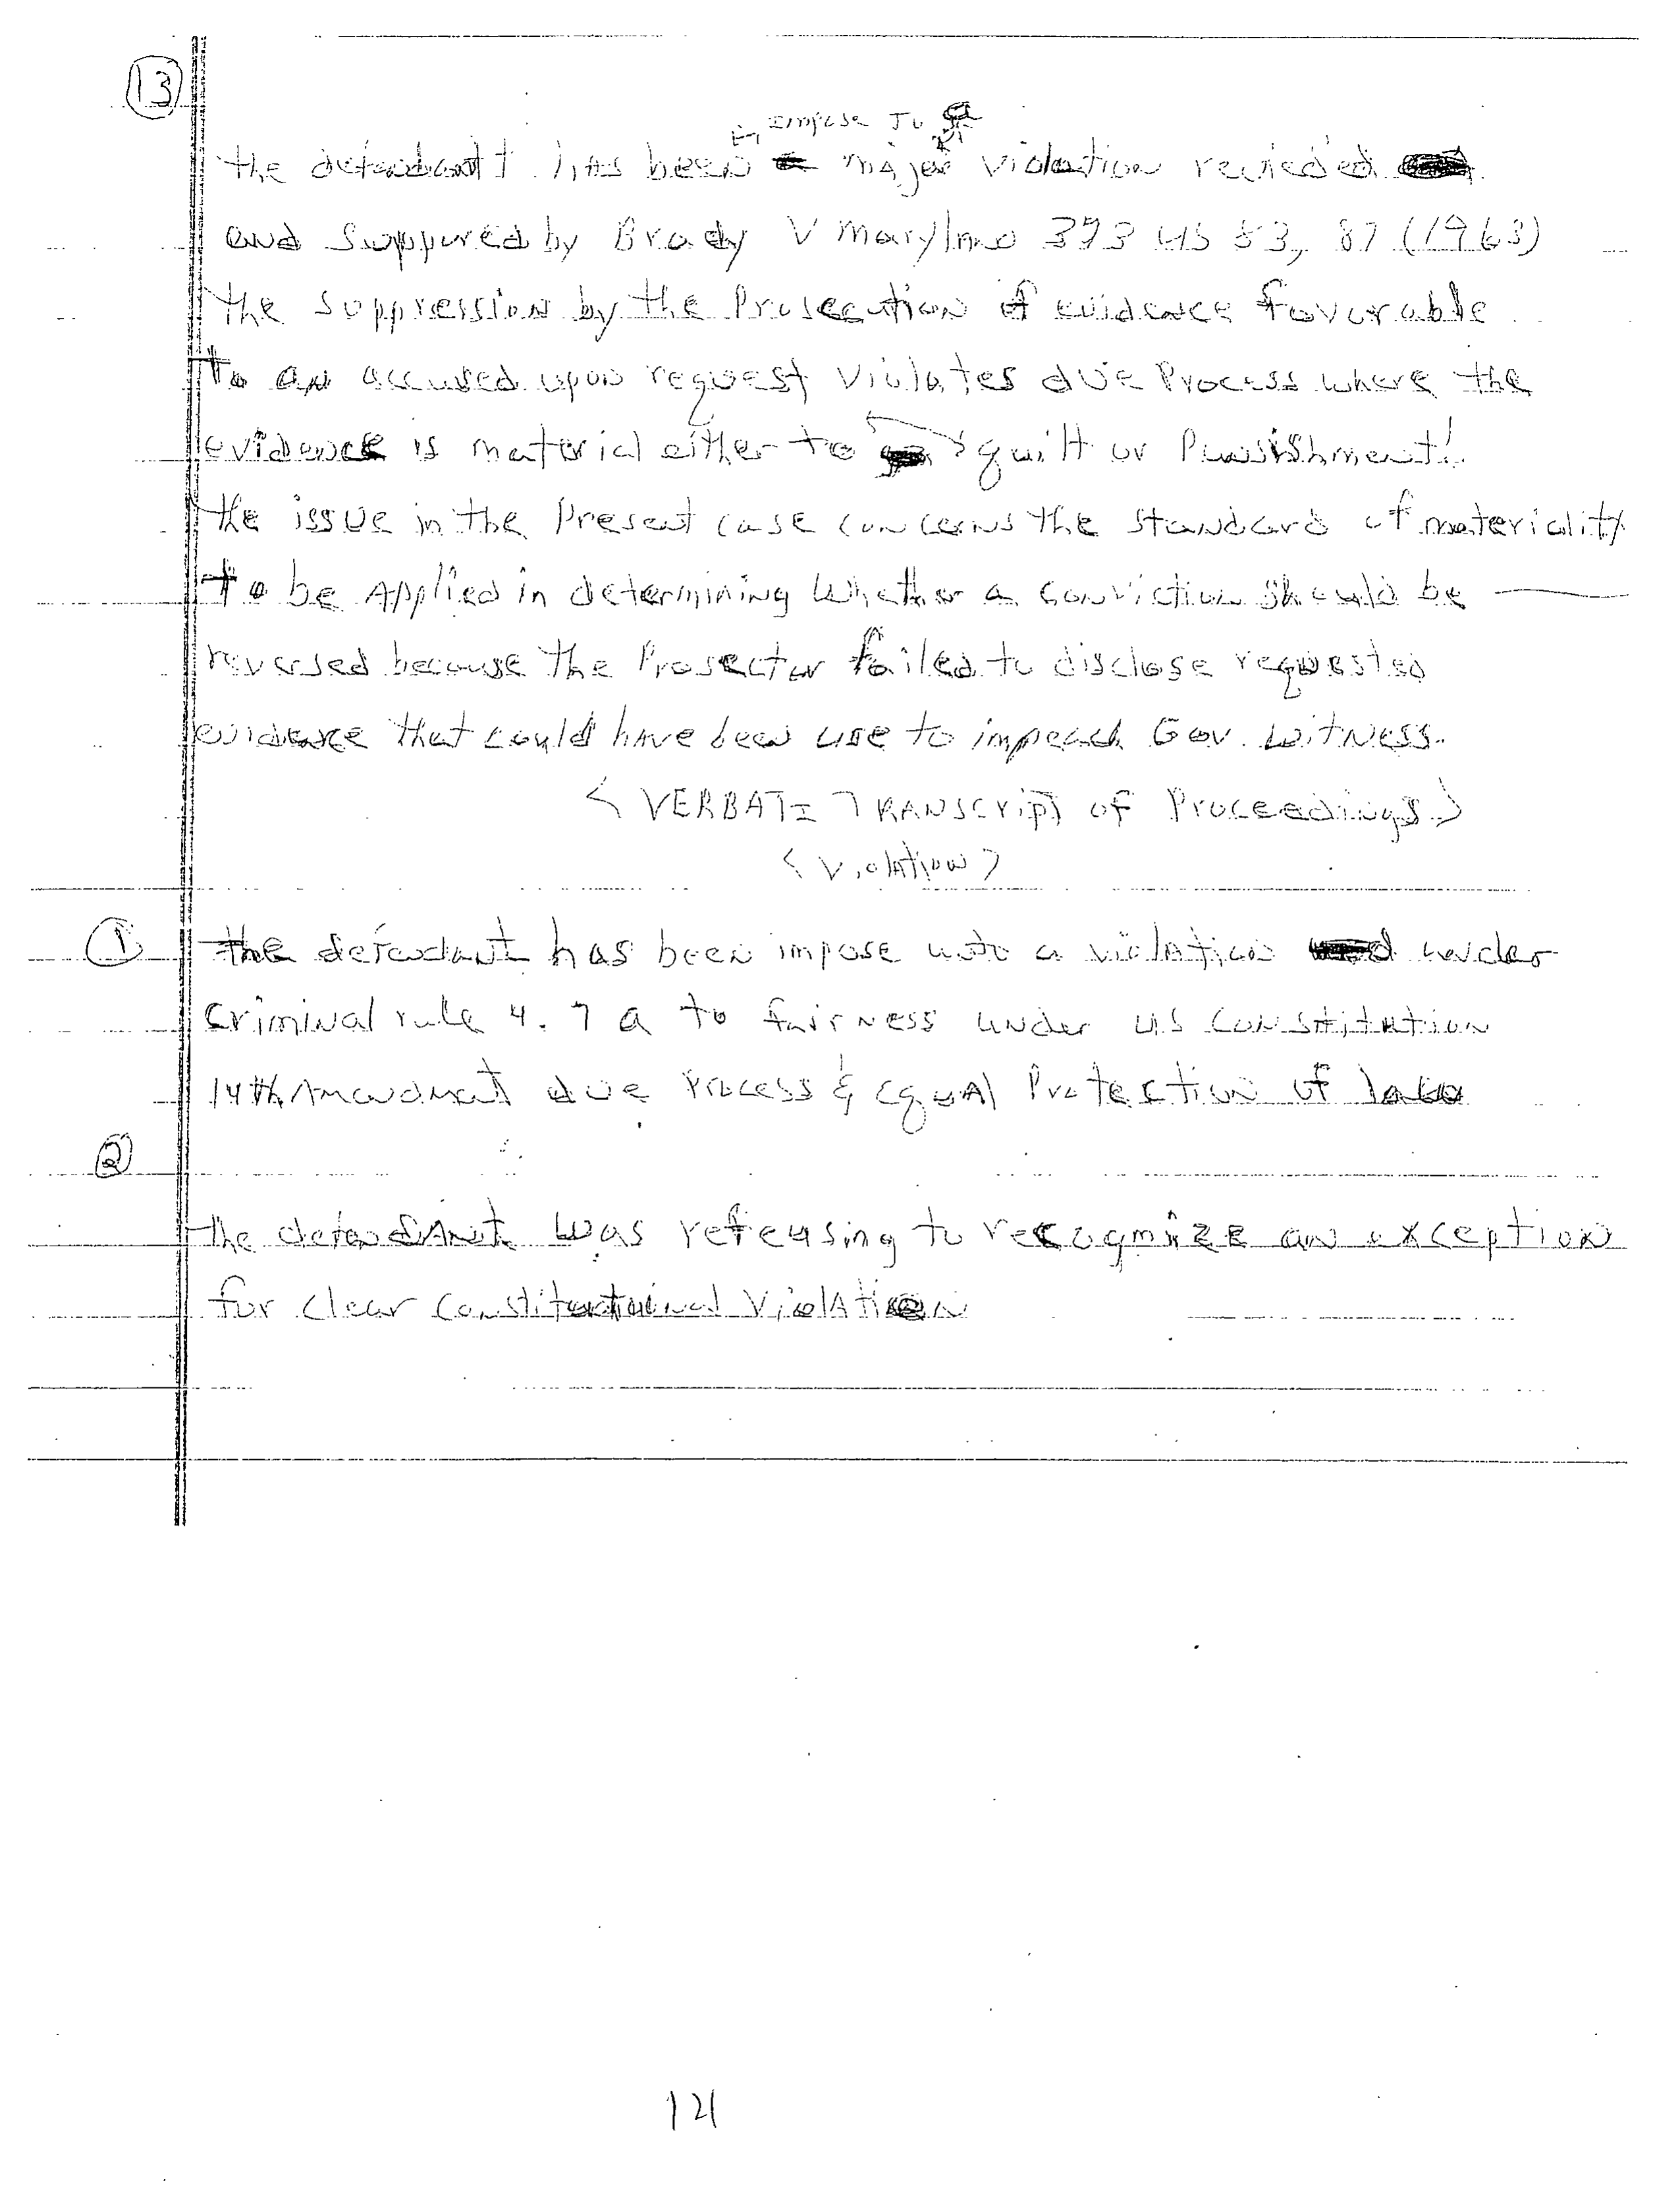 13
Impose To a
the defendant has been major violation revieded
and suppured by Brady V Marylnd 373 US 83, 87 (1963)
the suppression by the Prosecution of evidence favorable
to an accused upon request violates due Process where the
evidence is material either to guilt or Punishment!
the issue in the Present case concerns the standard of materiality
to be Applied in determining Whether a conviction should be
reversed because the Prosector failed to disclose requested
evidence that could have been use to impeach Gov. Witness.
< VERBATI TRANScript of Proceedings >
< Violation >
1 the defendant has been impose unto a violation under
Criminal rule 4.7 a to fairness under US Constitution
14th Amendment due Process & Equal Protection of law
2
the defendant was refeusing to recogmize an exception
for clear Constitutional Violation
121